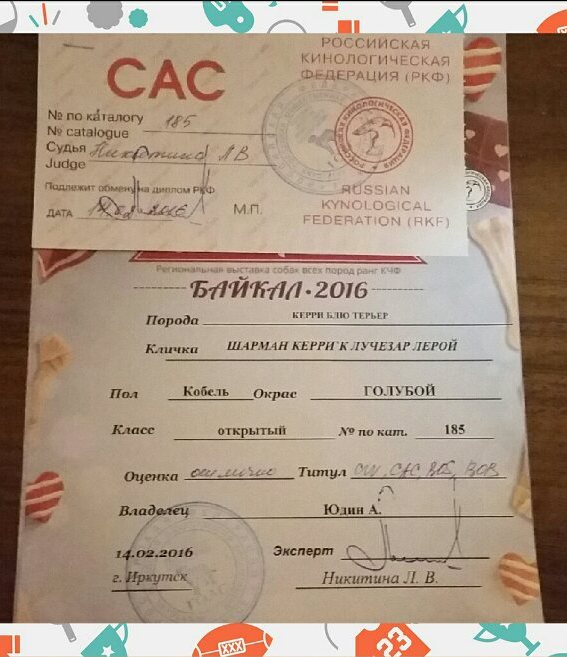 САС
РОССИЙСКАЯ
КИНОЛОГИЧЕСКАЯ
ФЕДЕРАЦИЯ (РКФ)
№ по каталогу 185
№ catalogue
Судья Никитина Л В
Judge
Подлежит обмену на диплом РКФ
ДАТА 14.02.2016
М.П.
RUSSIAN
KYNOLOGICAL
FEDERATION (RKF)
РОССИЙСКАЯ КИНОЛОГИЧЕСКАЯ ФЕДЕРАЦИЯ
Региональная выставка собак всех пород ранг КЧФ
БАЙКАЛ•2016
Порода КЕРРИ БЛЮ ТЕРЬЕР
Кличка ШАРМАН КЕРРИ`К ЛУЧЕЗАР ЛЕРОЙ
Пол Кобель Окрас ГОЛУБОЙ
Класс открытый № по кат. 185
Оценка отлично Титул CW, CAC, BOS, BOB
Владелец Юдин А.
14.02.2016 Эксперт
г. Иркутск Никитина Л. В.
XXX
23